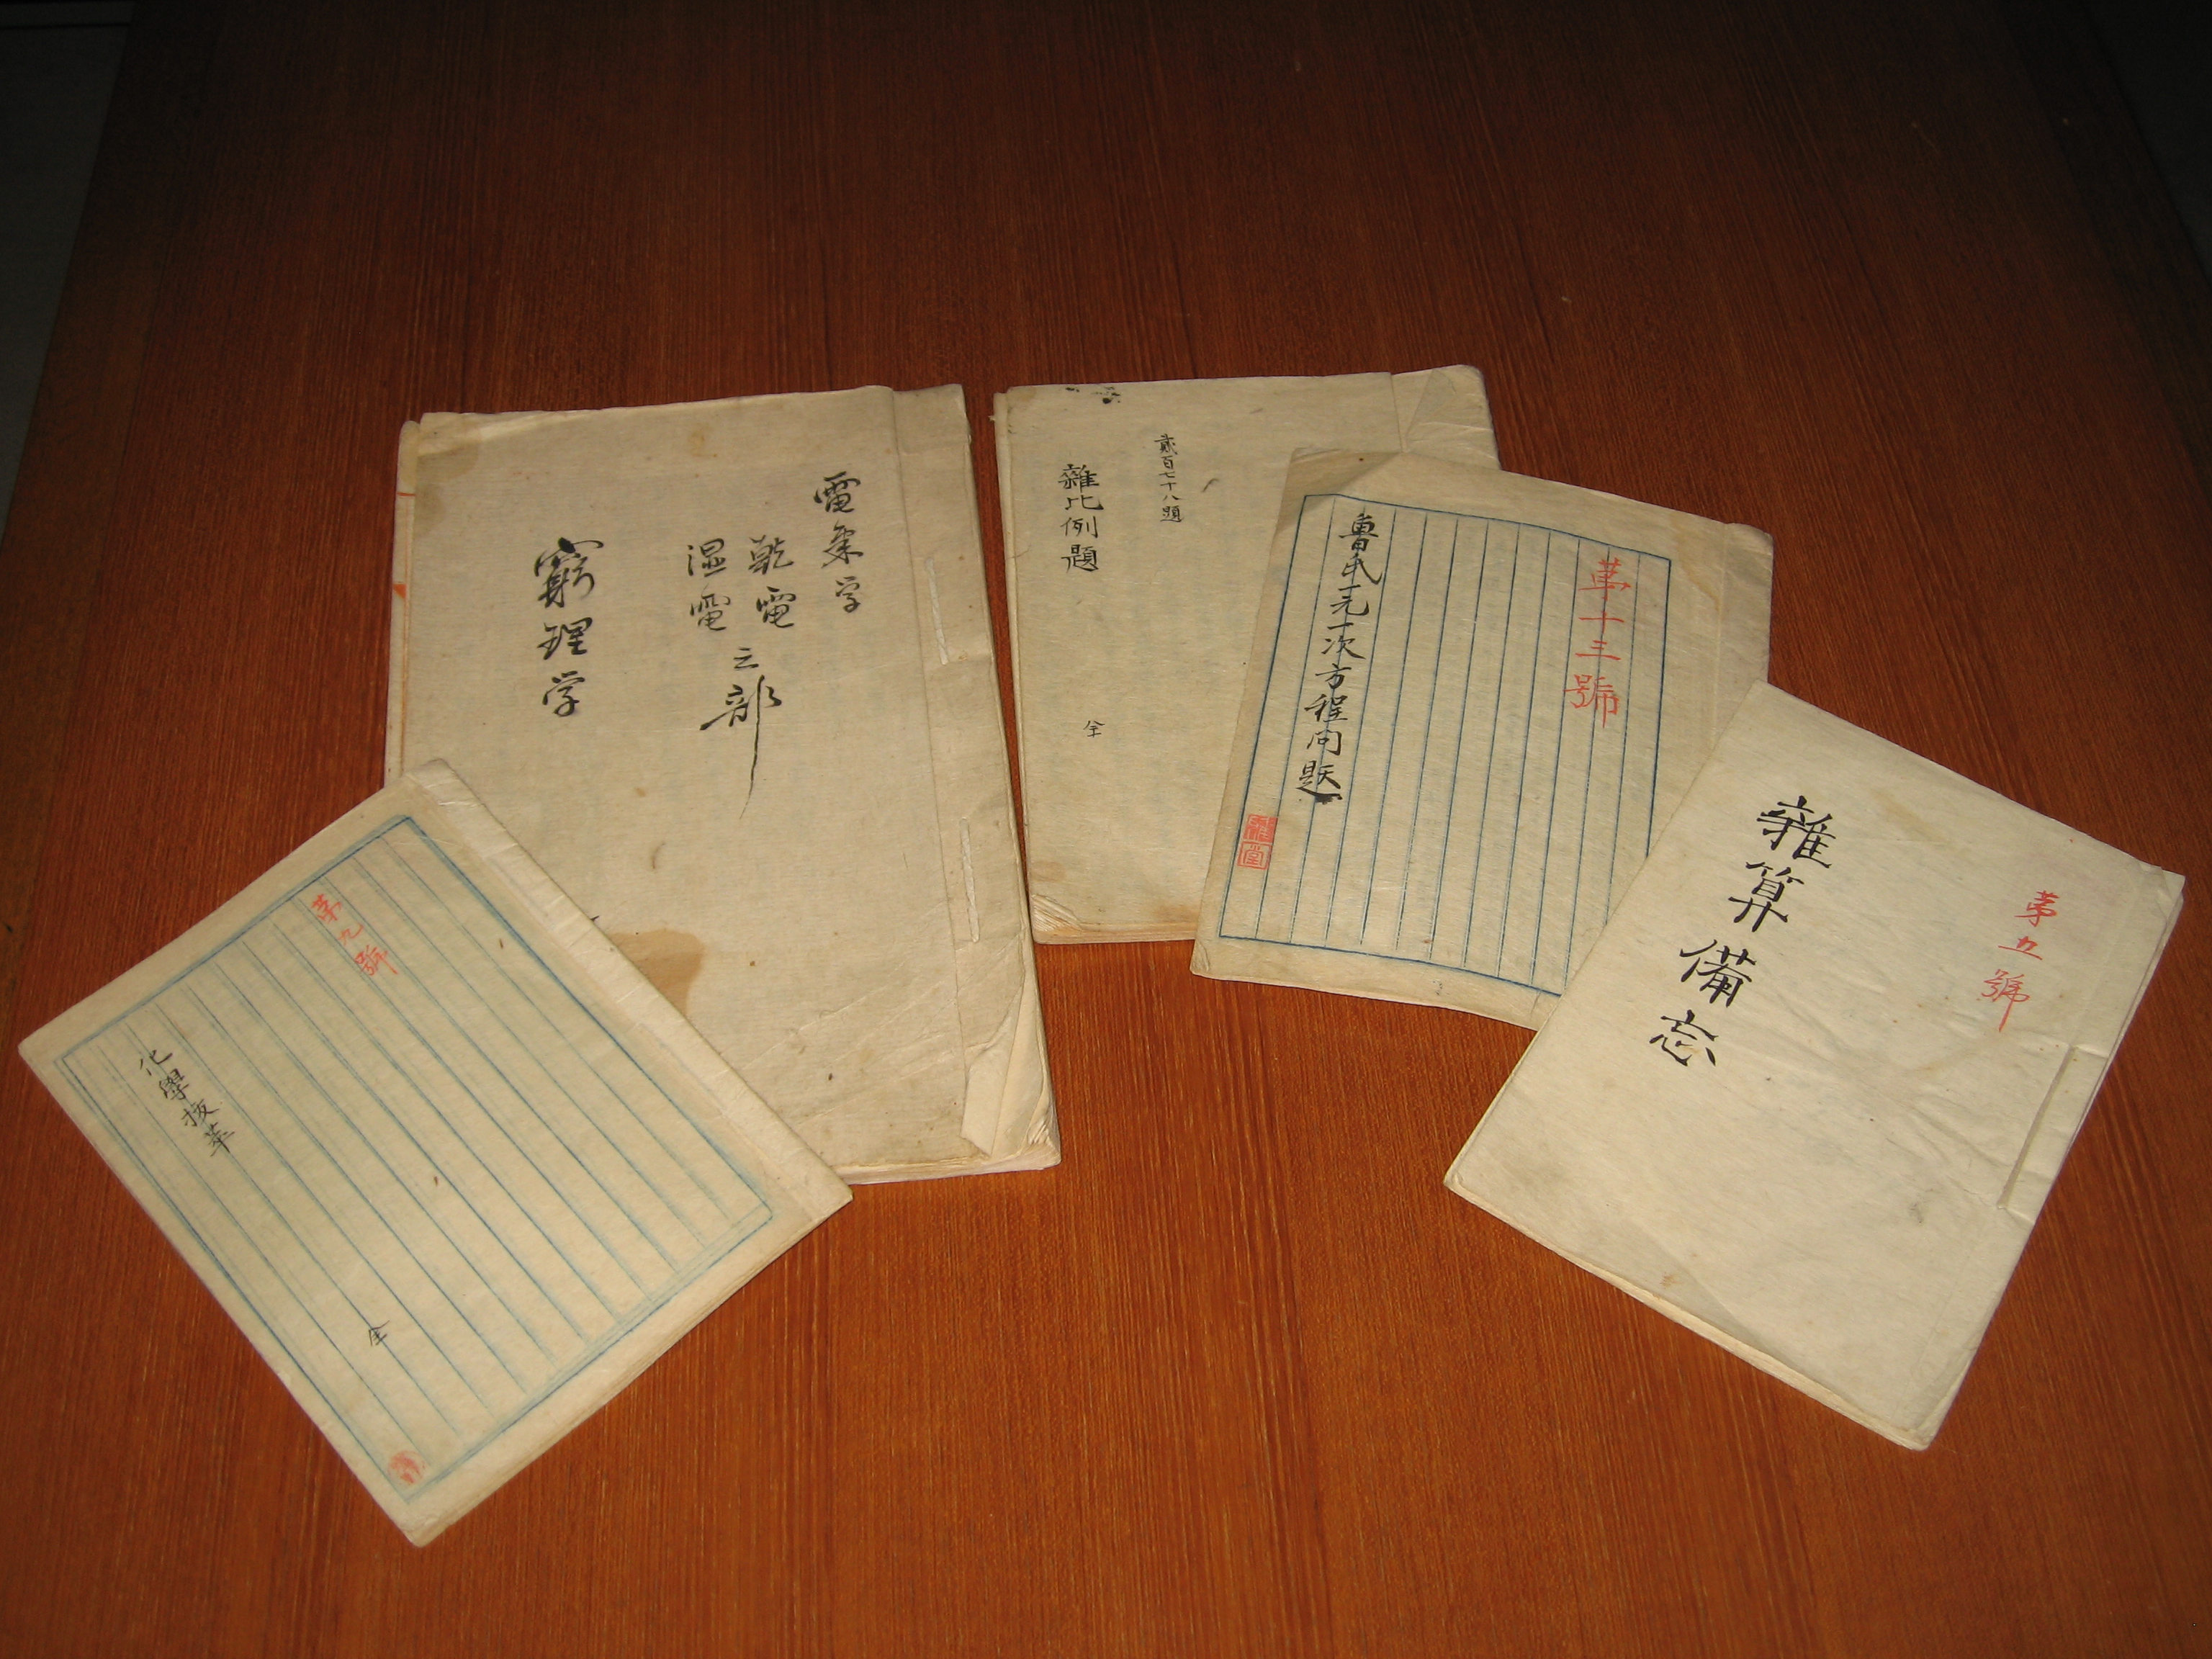 第九號
化學抜萃
全
電気学
乾電
湿電
之部
窮理学
貮百七十八題
雜比例題
全
第十三號
魯氏一元一次方程問題
第五號
雜算備忘